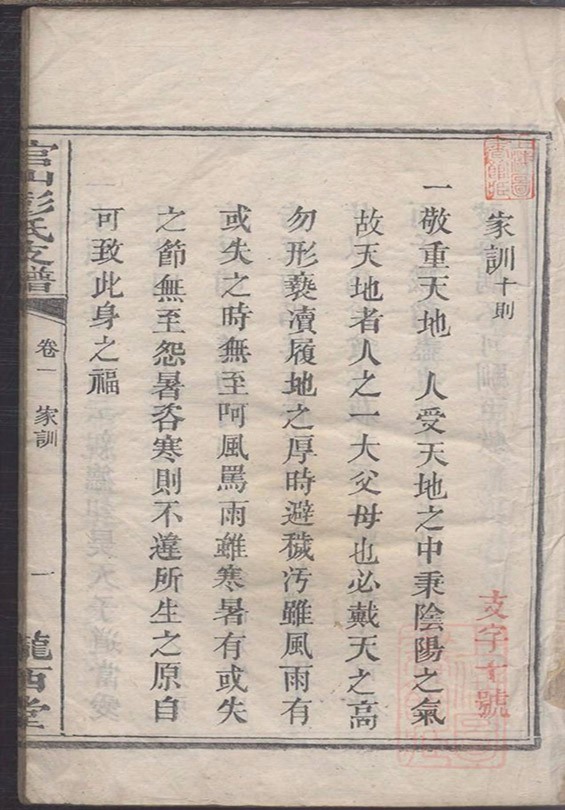 家訓十則
支字十號
一敬重天地　人受天地之中秉陰陽之氣
故天地者人之一大父母也必戴天之高
勿形褻瀆履地之厚時避穢汚雖風雨有
或失之時無至呵風罵雨雖寒暑有或失
之節無至怨暑咨寒則不違所生之原自
可致此身之福
官山彭氏支譜
卷一　家訓
一
隴西堂